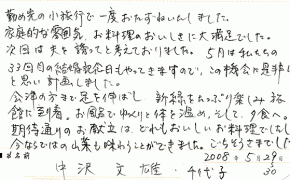 勤め先の小旅行で一度おたずねいたしました。
家庭的な雰囲気、お料理のおいしさに大満足でした。
次回は夫を誘ってと考えておりました。5月は私たちの
33回目の結婚記念日もやってきますので、この機会に是非
と思い計画しました。
会津の方まで足を伸ばし 新緑をたっぷり楽しみ 旅
館に到着。お風呂でゆっくりと体を温め、そして、夕食へ。
期待通りのお献立は、どれもおいしいお料理でした
今ならではの山菜も味わうことができました。ごちそうさまでした
お名前 2008年5月29日
中沢 文雄・千代子 30